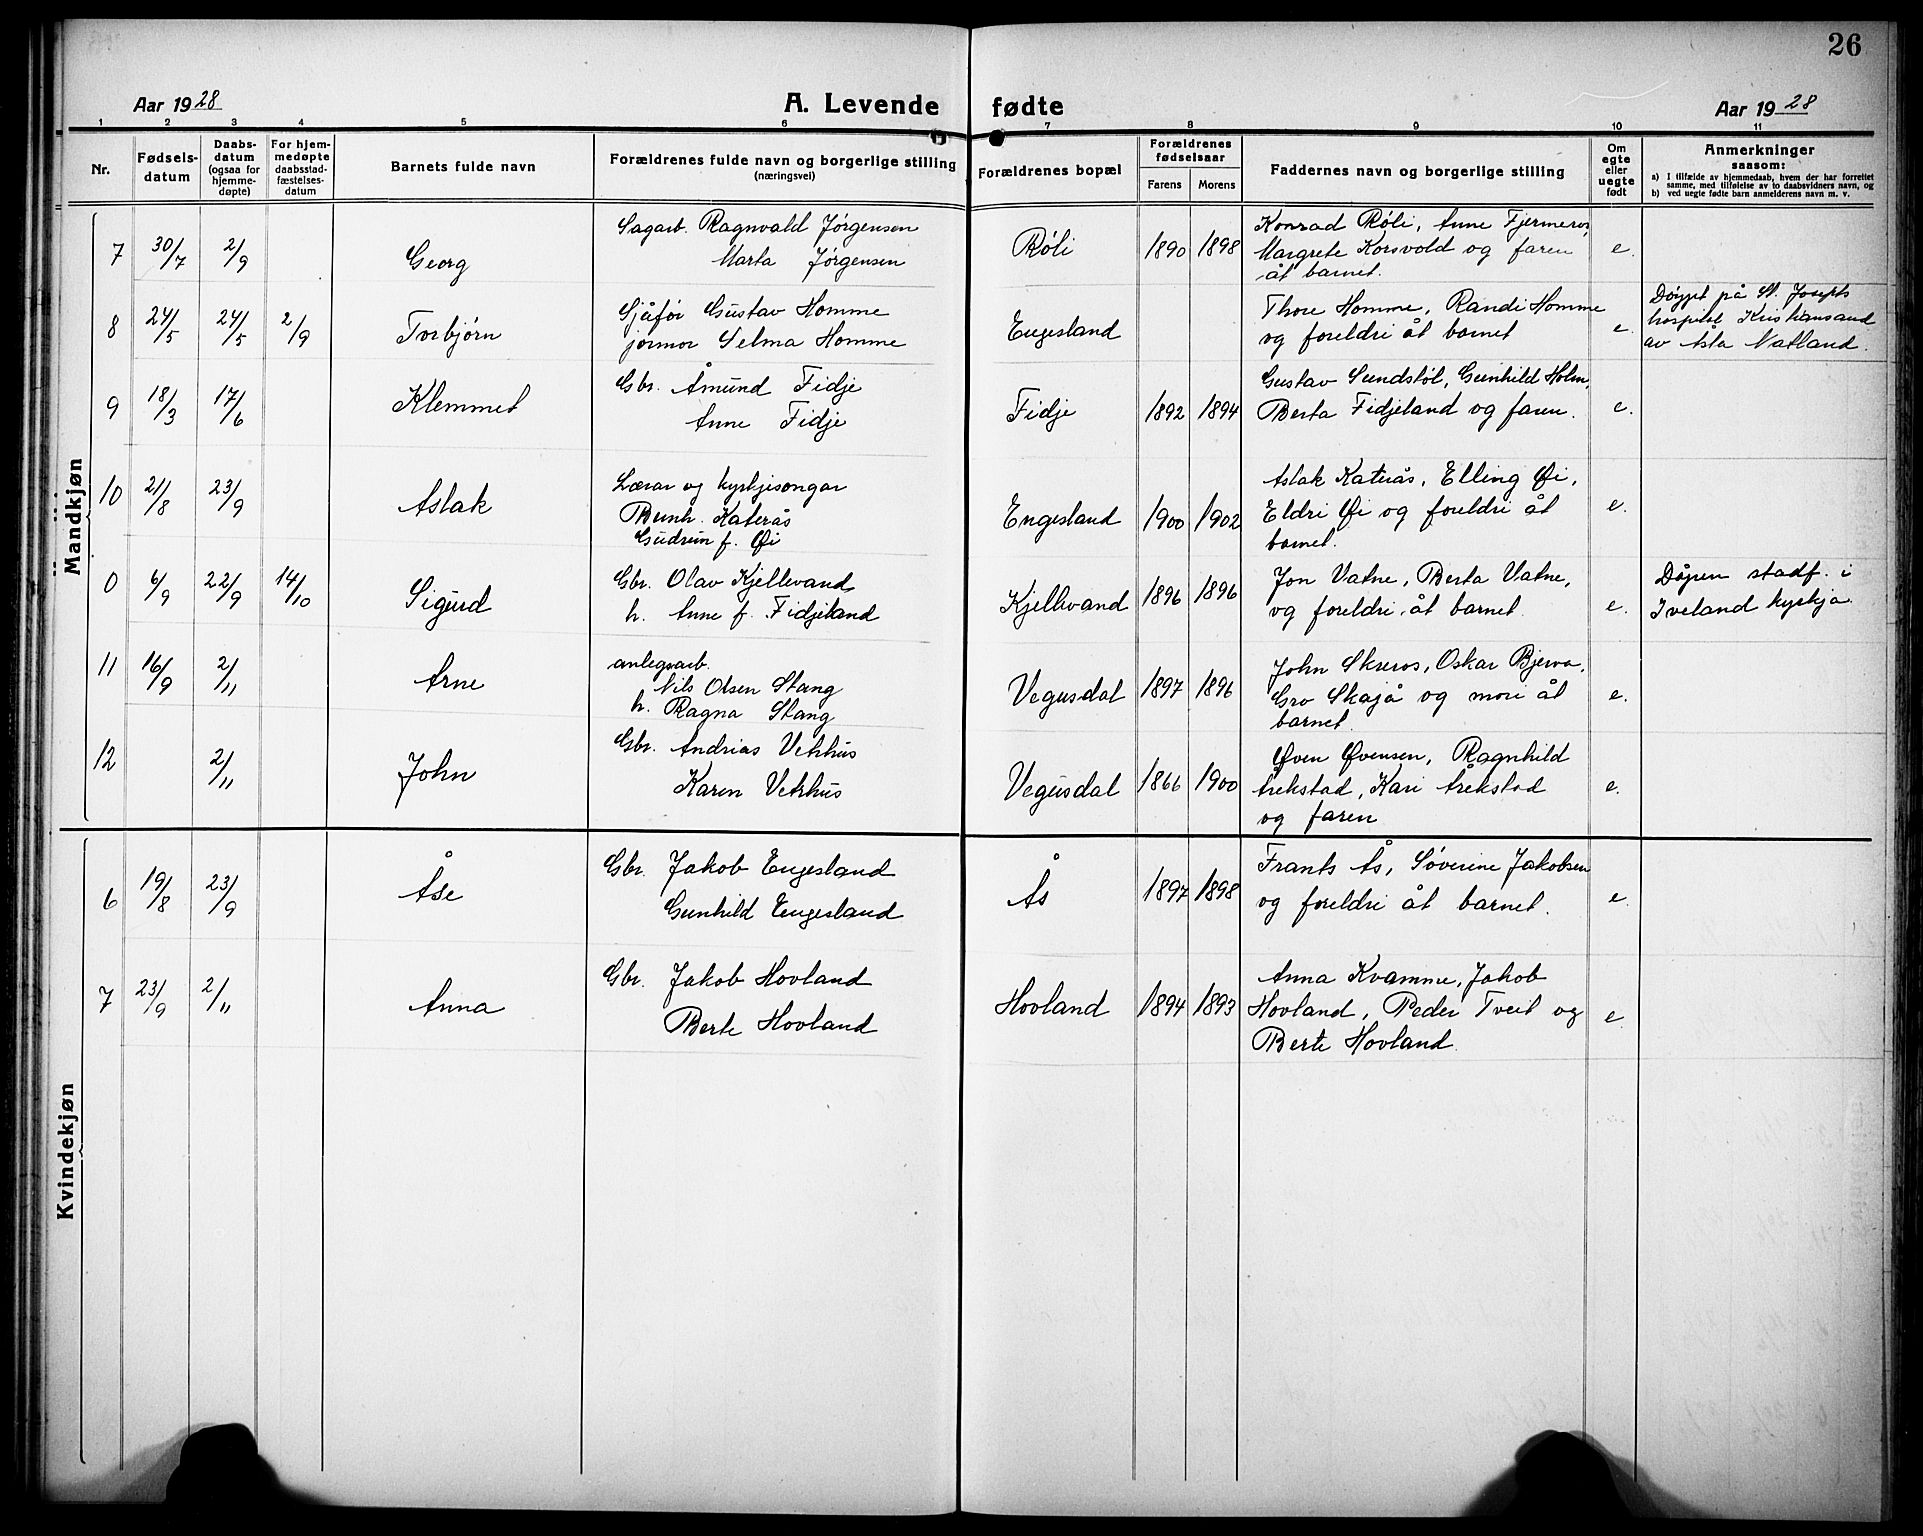 26
Aar 1928
A. Levende fødte
Aar 1928
1 2 3 4 5 6 7 8 9 10 11
Nr.
Fødsels-
datum
Daabs-
datum
(ogsaa for
hjemme-
døpte)
For hjem-
medøpte
daabsstad-
fæstelses-
datum
Barnets fulde navn
Forældrenes fulde navn og borgerlige stilling
(næringsvei)
Forældrenes bopæl
Forældrenes
fødselsaar
Farens
Morens
Faddernes navn og borgerlige stilling
Om
egte
eller
uegte
født
Anmerkninger
saasom:
a) I tilfælde av hjemmedaab, hvem der har forrettet
samme, med tilføielse av to daabsvidners navn, og
b) ved uegte fødte barn anmelderens navn m. v.
Mandkjøn
7 30/7 2/9 Georg
Sagarb. Ragnvald Jørgensen
Marta Jørgensen
Røli 1890 1898
Konrad Røli, Anne Fjermeros,
Margrete Korsvold og faren
åt barnet.
e.
8 24/5 24/5 2/9 Torbjørn
Sjåfør Gustav Homme
jormor Selma Homme
Engesland
Thore Homme, Randi Homme
og foreldri åt barnet
e.
Døypt på St. Josephs
hospital Kristiansand
av Åsta Natland.
9 18/3 17/6 Klemmet
Gbr. Åmund Fidje
Anne Fidje
Fidje 1892 1894
Gustav Sundstøl, Gunhild Holm,
Berta Fidjeland og faren.
e.
10 21/8 23/9 Aslak
Lærar og kyrkjesongar
Bernh. Katerås
Gudrun f. Øi
Engesland 1900 1902
Aslak Katerås, Elling Øi,
Eldri Øi og foreldri åt
barnet.
e.
0 6/9 22/9 14/10 Sigurd
Gbr. Olav Kjellevand
h. Anne f. Fidjeland
Kjellevand 1896 1896
Jon Vatne, Berta Vatne,
og foreldri åt barnet
e.
Dåpen stadf. i
Iveland kyrkja
11 16/9 2/11 Arne
anlegsarb.
Nils Olsen Stang
h. Ragna Stang
Vegusdal 1897 1896
John Skreros, Oskar Bjerva,
Gro Skajå og mori åt
barnet.
e.
12 2/11 John
Gbr. Andrias Vetrhus
Karen Vetrhus
Vegusdal 1866 1900
Øven Øvensen, Ragnhild
Årekstad, Kari Årekstad
og faren
e.
Kvindekjøn
6 19/8 23/9 Åse
Gbr. Jakob Engesland
Gunhild Engesland
Ås 1897 1898
Frants Ås, Søverine Jakobsen
og foreldri åt barnet.
e.
7 23/9 2/11 Anna
Gbr. Jakob Hovland
Berte Hovland
Hovland 1894 1893
Anna Kvamme, Jakob
Hovland, Peder Tveit og
Berte Hovland
e.